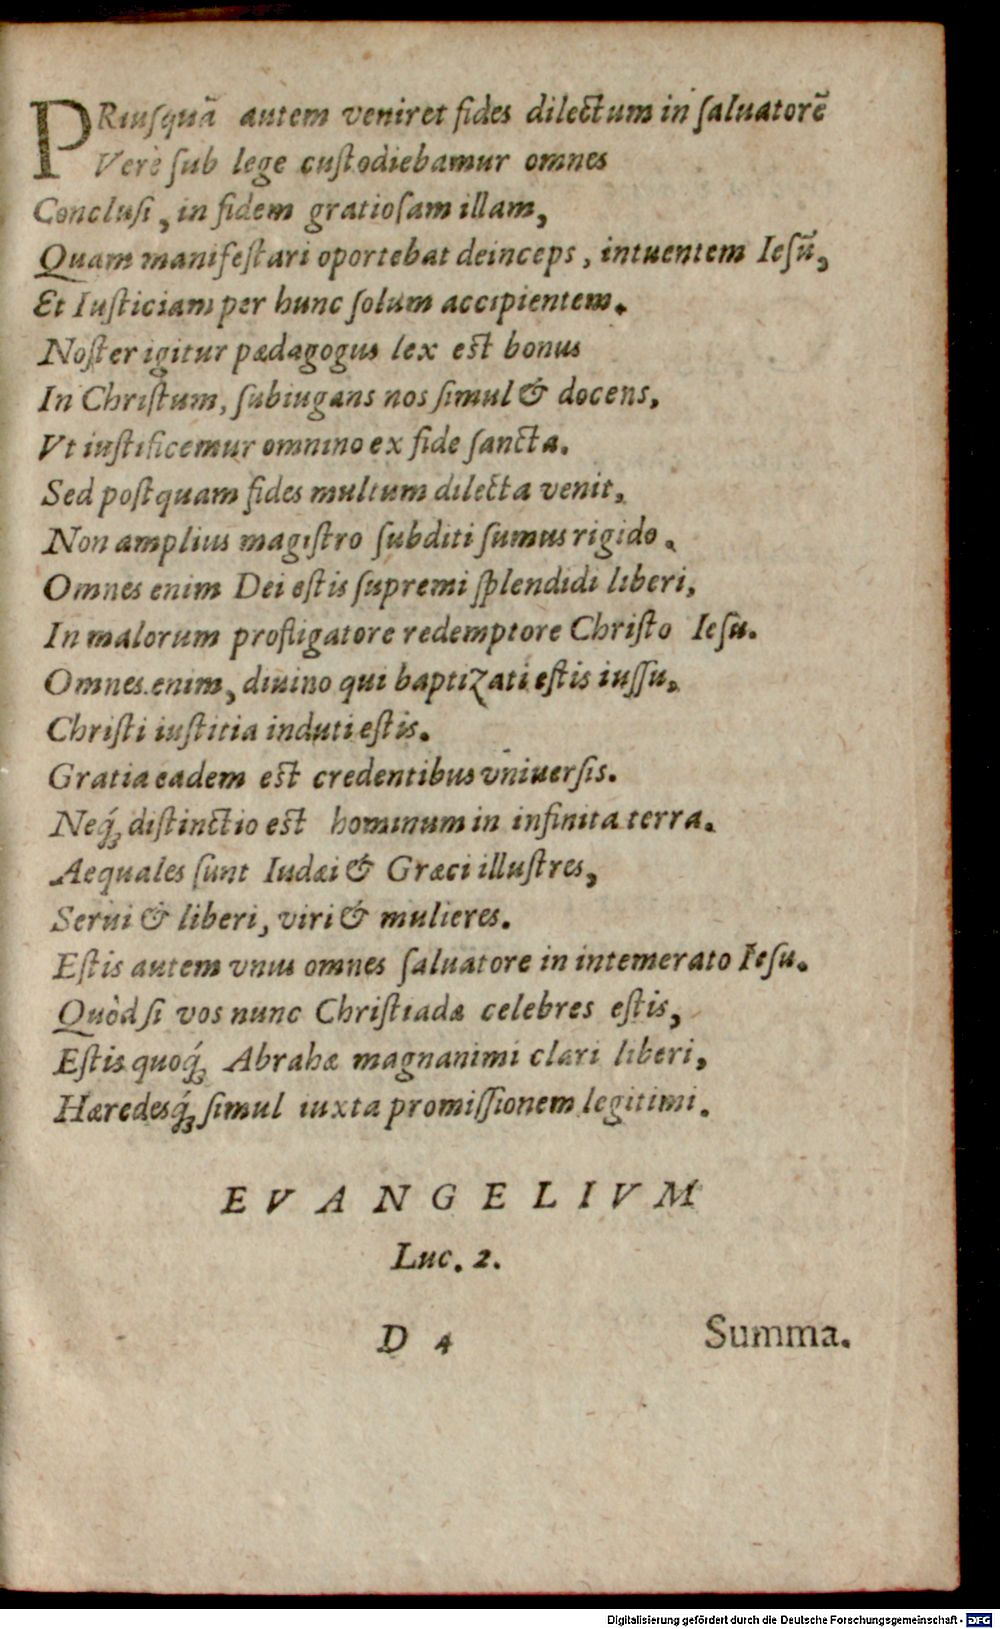 PRiuſquā autem veniret fides dilectum in ſaluatorē
Verè ſub lege cuſtodiebamur omnes
Concluſi, in fidem gratioſam illam,
Quam manifeſtari oportebat deinceps, intuentem Ieſū,
Et Iuſticiam per hunc ſolum accipientem.
Noſter igitur pædagogus lex est bonus
In Chriſtum, ſubiugans nos ſimul & docens,
Vt iuſtificemur omnino ex fide ſancta.
Sed poſtquam fides multum dilecta venit,
Non amplius magiſtro ſubditi ſumus rigido.
Omnes enim Dei eſtis ſupremi ſplendidi liberi,
In malorum profligatore redemptore Chriſto Ieſu.
Omnes enim, diuino qui baptizati eſtis iuſſu,
Chriſti iuſtitia induti eſtis.
Gratia eadem est credentibus vniuerſis.
Neq́ꝫ diſtinctio est hominum in infinita terra.
Aequales ſunt Iudæi & Græci illuſtres,
Serui & liberi, viri & mulieres.
Eſtis autem vnus omnes ſaluatore in intemerato Ieſu.
Quòd ſi vos nunc Chriſtiadæ celebres eſtis,
Eſtis quoq́ꝫ Abrahæ magnanimi clari liberi,
Hæredesq́ꝫ ſimul iuxta promiſſionem legitimi.
EVANGELIVM
Luc. 2.
D 4 Summa.
Digitalisierung gefördert durch die Deutsche Forschungsgemeinschaft - DFG